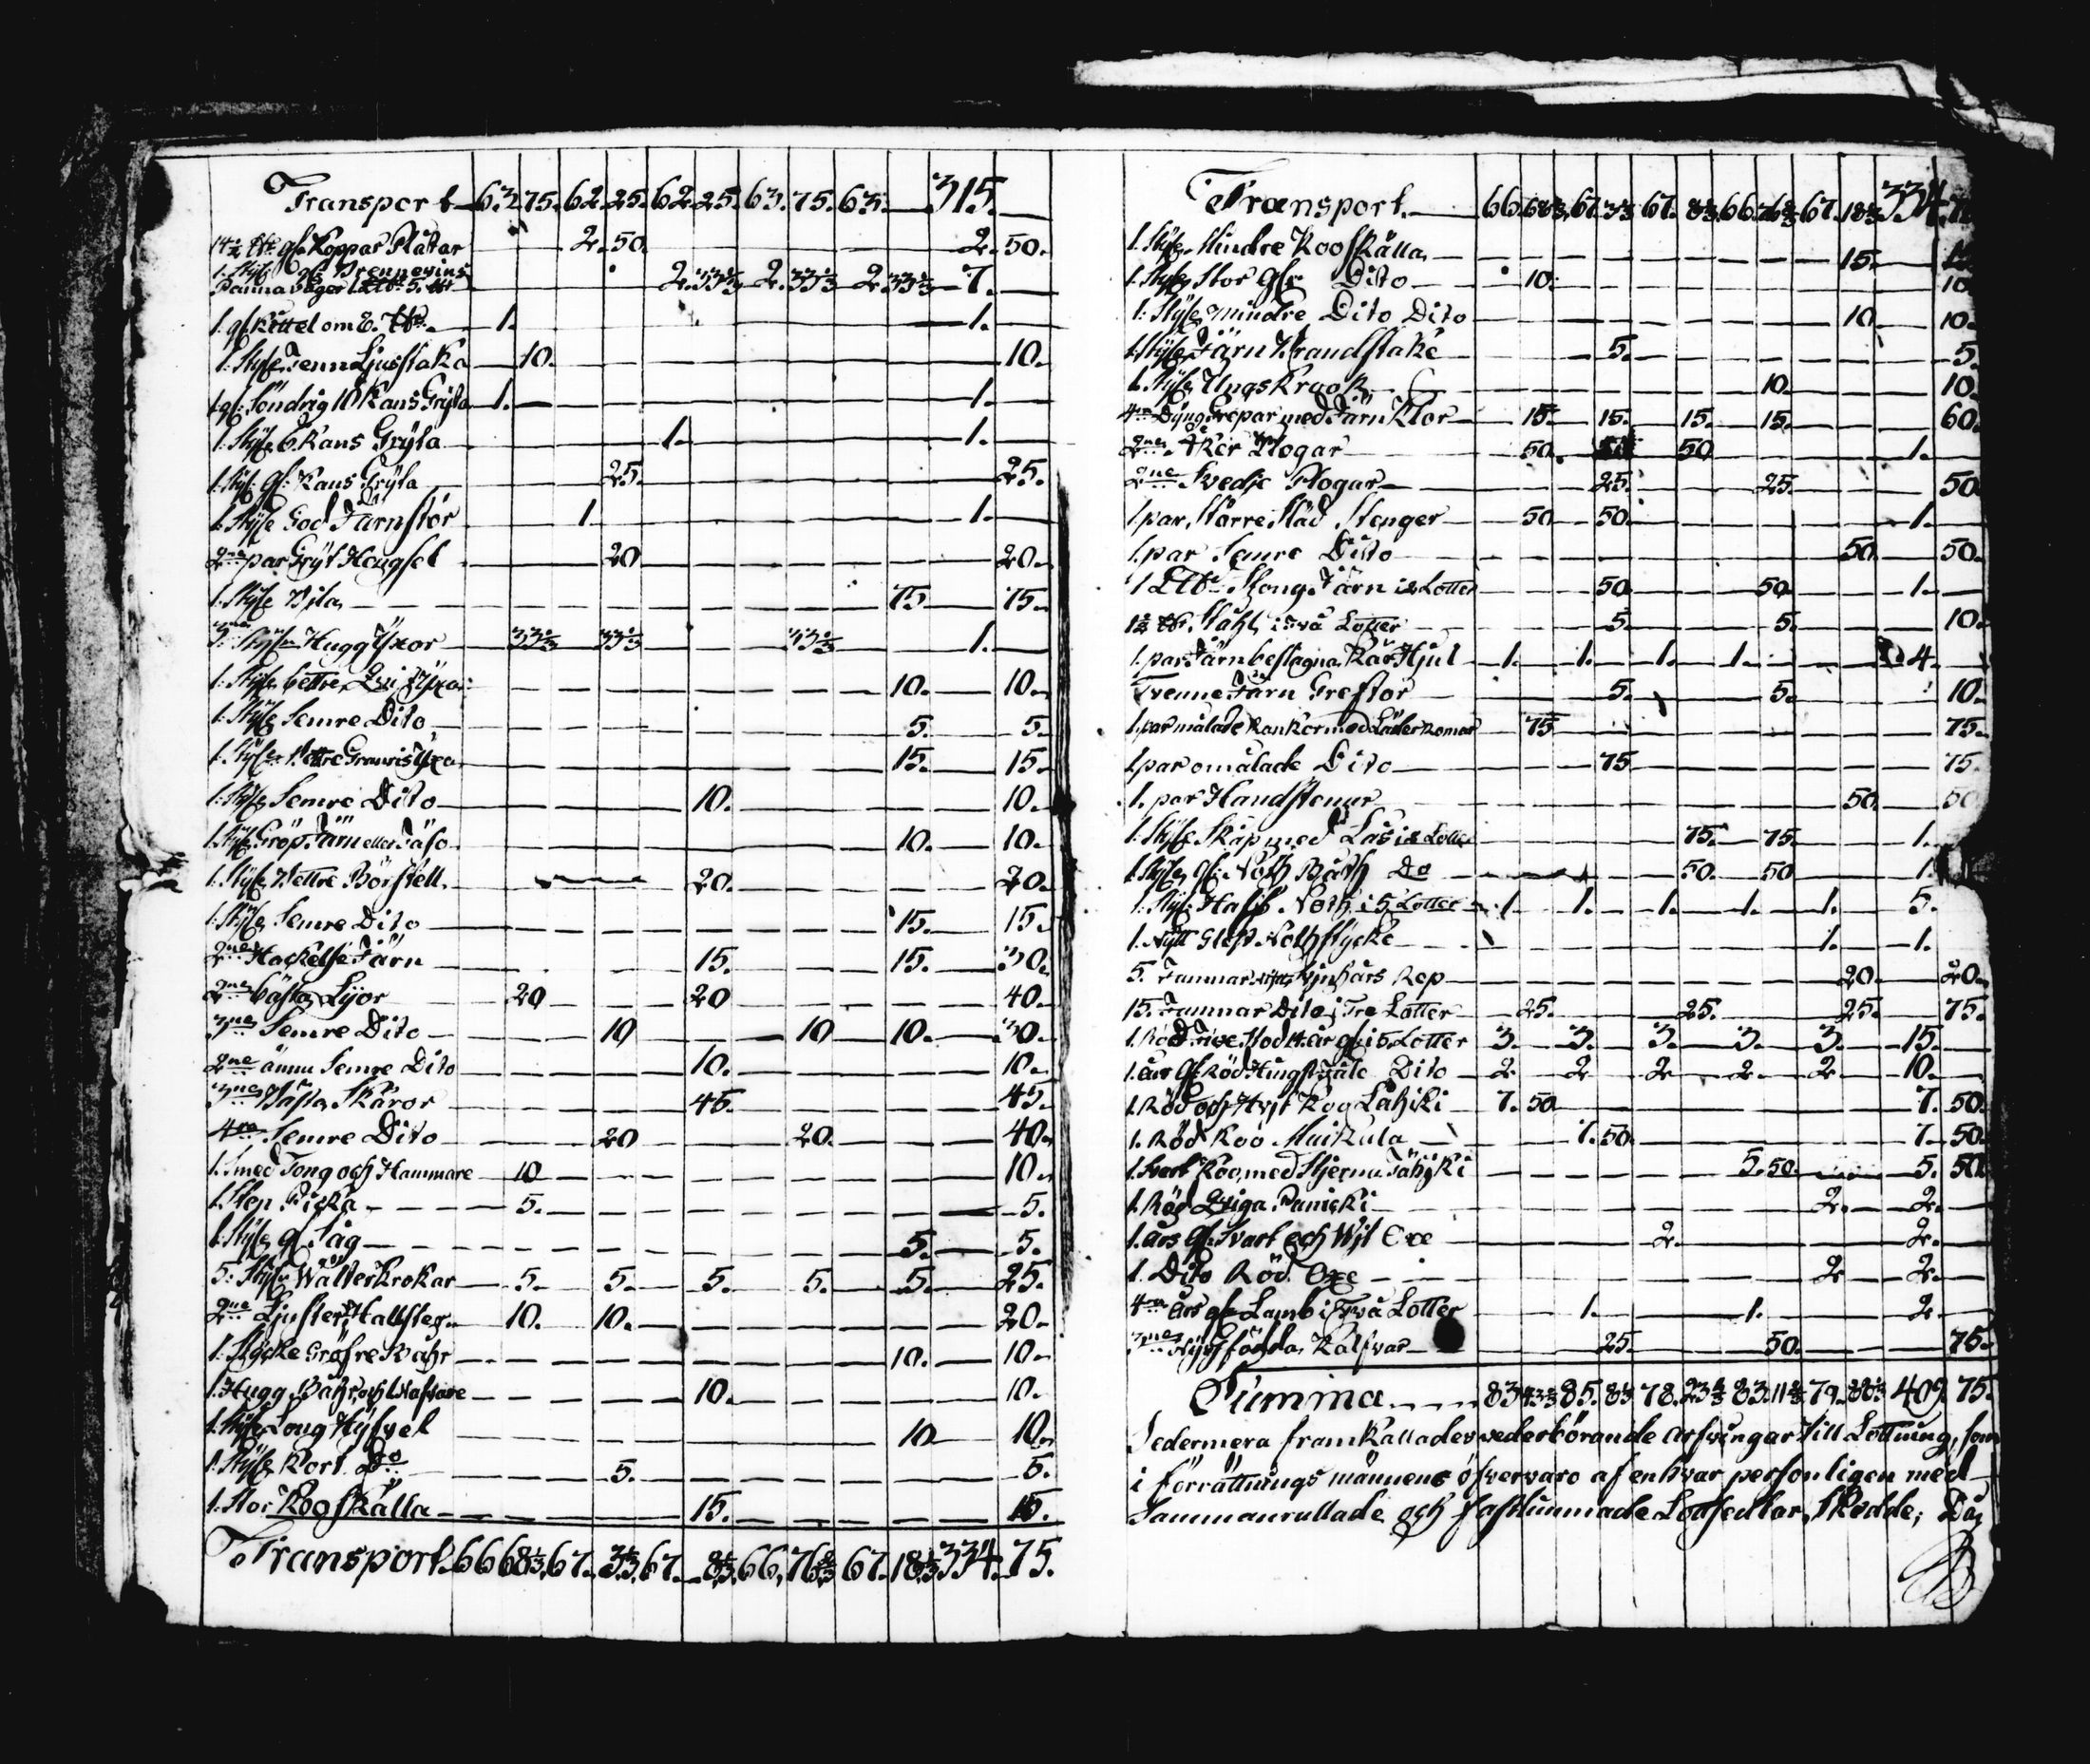 Transport 63. 75. 62. 25. 62. 25. 63. 75. 63. 315.
14½ gl. Koppar Plåtar 2. 50. 2. 50.
1. Styk gl. Brennevins
Panna väger 1 5. 2. 33⅓ 2. 33⅓ 2. 33⅓ 7.
1. gl. Kittel om 8. 1. 1.
1. Styk Tenn Ljusstaka 10. 10.
1 gl. Söndrig 10 Kans Gryta 1. 1.
1. Styk 6 Kans Gryta 1. 1.
1. Styk gl: Kans Gryta 25. 25.
1. Styk God Järnstör 1. 1.
2ne par Gryt Hengsel 20 20.
1. Styk Bila 75. 75.
3ne Stykn Hugg Yxor 33⅓ 33⅓ 33⅓ 1.
1. Styk bettre Yxa 10. 10.
1. Styk Semre Dito 5. 5.
1. Styk Bettre Granris Yxa 15. 15.
1. Styk Semre Dito 10. 10.
1. Styk Gröp Järn eller Täso 10. 10.
1. Styk Bettre Börstell 20. 20.
1. Styk Semre Dito 15. 15.
2ne Hackelse Järn 15. 15. 30.
2ne bästa Lijor 20 20 40.
3ne Semre Dito 10 10 10. 30.
2ne ännu Semre Dito 10. 10.
3ne Bästa Skäror 45. 45.
4ra Semre Dito 20 20. 40.
1. Smed Tong och Hammare 10 10.
1. Sten Picka 5. 5.
1. Styk gl Såg 5. 5.
5. Stykn Walterkrokar 5. 5. 5. 5. 5. 25.
2ne Ljuster 10. 10. 20.
1. Stycke Gröfre Bahr 10. 10.
1. Hugg Bahr, och 1 Nafvare 10. 10.
1. Styk Long Hyfvel 10 10.
1. Styk Kort Do 5. 5.
1. Stor Kooskälla 15. 15.
Transport 66 68⅓ 67. 3⅓ 67. 8⅓ 66. 76⅔ 67. 18⅓ 334. 75.
Transport 66. 68⅓ 67. 3⅓ 67. 8⅓ 66. 76⅔ 67. 18⅓ 334. 75
1. Styk Mindre Kooskälla 15. 15
1. Styk Stor gl Dito 10. 10
1. Styk mindre Dito Dito 10 10.
1. Styk Järn Brandstake 5. 5.
1. Styk Ungs Kraok 10. 10.
4ra Dyng Grepar med Järn Klor 15. 15. 15. 15. 60.
2ne Åker Plogar 50. 50 1.
2ne Svedje Plogar 25. 25. 50
1 par Större Släd Stenger 50 50. 1.
1. par Semre Dito 50. 50.
1 Stong Järn i 2 Lotter 50 50 1.
1½ Stahl i två Lotter 5. 5. 10.
1. par Järnbeslagna Kär Hjul 1. 1. 1. 1. 4.
Tvenne Järn Grestör 5. 5. 10.
1. par målade Kankor med Läder 75 75.
1. par omålade Dito 75 75.
1. par Handstenar 50. 50
1. Styk Skåp med Lås i 2 Lotter 75. 75. 1.
1. Styk gl: Noth Båth Do 50. 50 1.
1. Styk Half Noth i 5 Lotter 1 1. 1. 1. 1. 5.
1. Nytt Glest Nothstycke 1. 1.
5. Famnar Svinhårs Rep 20. 20.
15. Famnar Dito i Tre Lotter 25. 25. 25. 75.
1. Röd gl. i 5 Lotter 3. 3. 3. 3. 3. 15.
1. års gl. Röd Hingst Fåle Dito 2 2 2 2. 2. 10.
1. Röd och Hvit Koo Låhiki 7. 50 7. 50.
1. Röd Koo Muikula 7. 50. 7. 50.
1. Svart Koo, med Stjerna Tähyki 5. 50. 5. 50.
1. Röd Qviga Punicki 2. 2.
1. års gl. Svart och Wit Oxe 2. 2.
1. Dito Röd Oxe 2 2.
4ra års gl Lamb i Två Lotter 1. 1. 2.
3ne Nyss födda Kalfvar 25. 50. 75.
Summa 83. 93⅓ 85. 8⅓ 78. 23⅓ 83. 11⅔ 79. 409. 75.
Sedermera framkallades vederbörande arfvingar till Lottning, som
i förrättnings männens öfvervaro af enhvar personligen med
Sammanrullade och Lottsedlar, Skedde; Då,